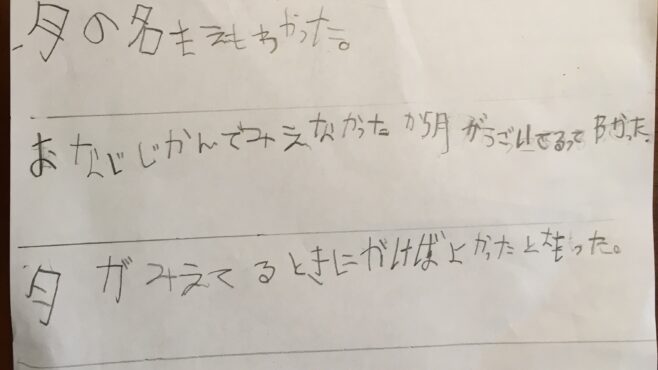 月の名まえもわかった。
おなじじかんでみえなかったから月がうごいてるってわかった。
月がみえてるときにかけばよかったとおもった。